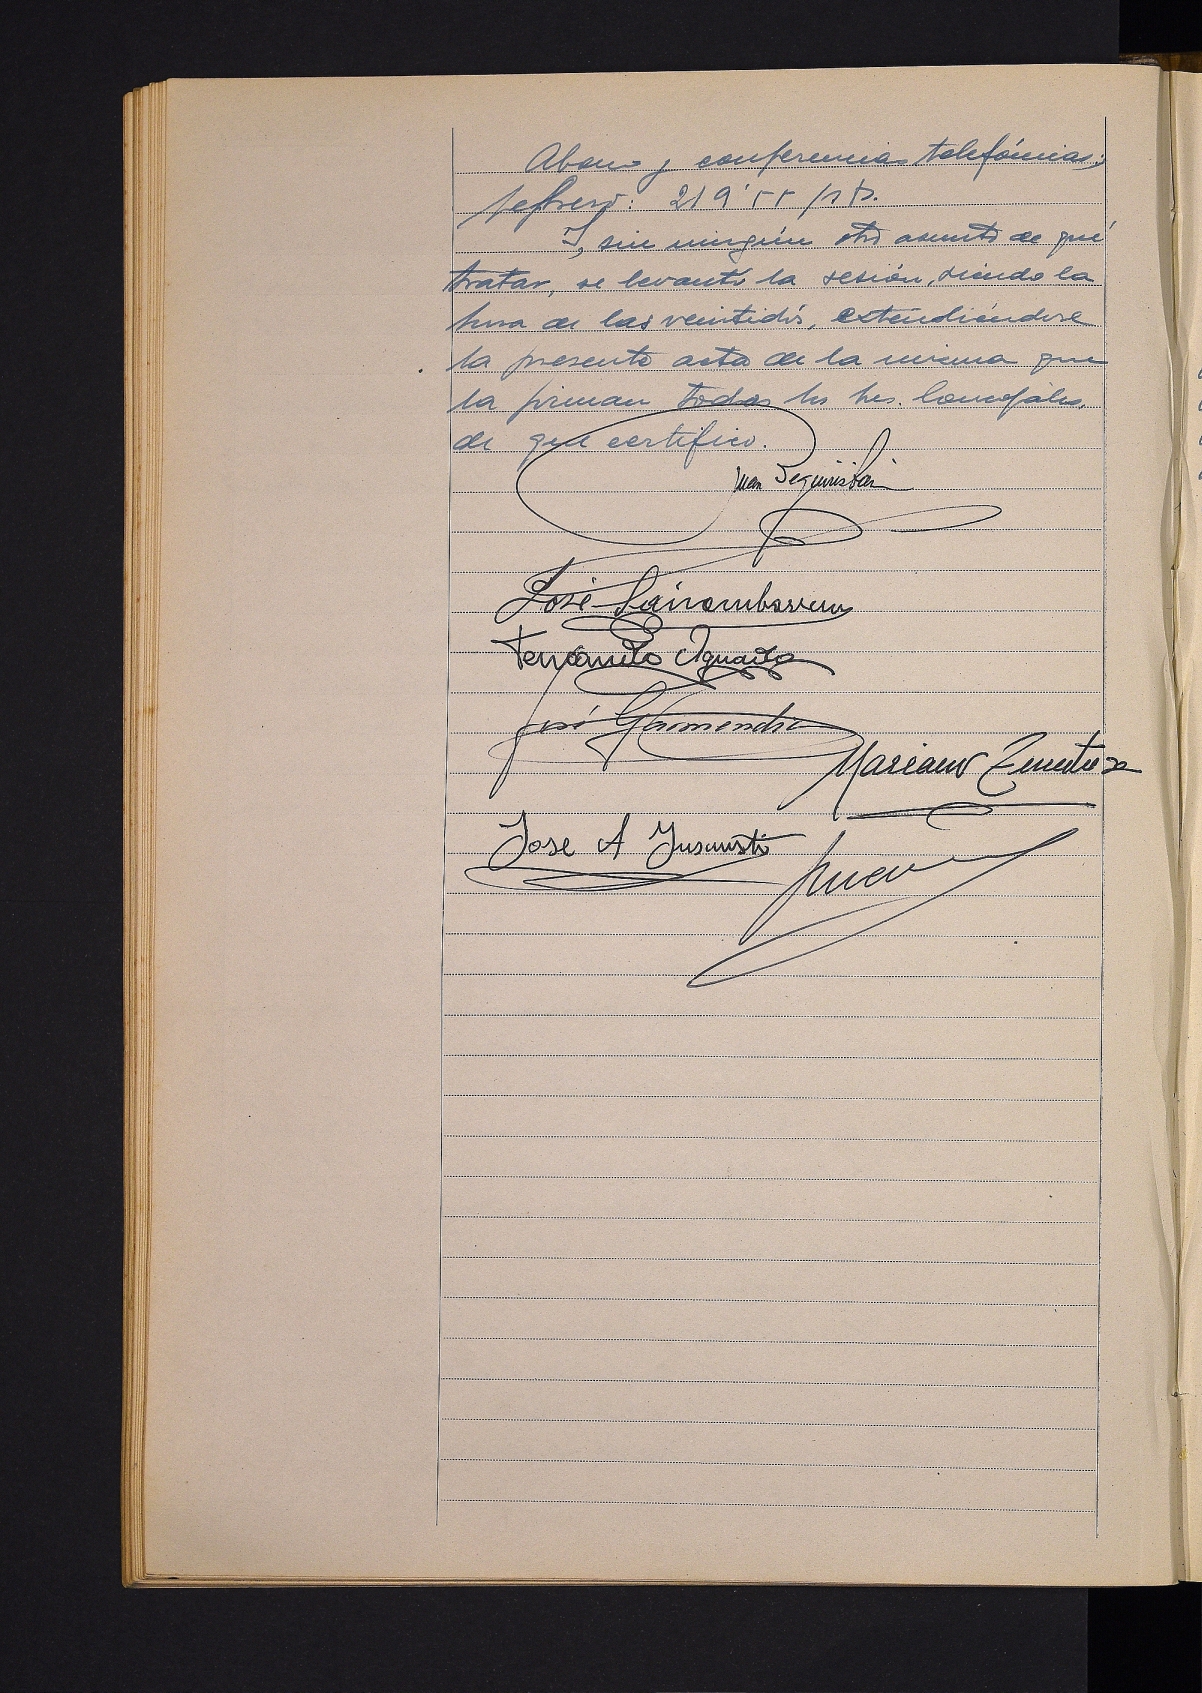 Abono y conferencias telefónicas,
febrero: 219'55 pts.
Y, sin ningún otro asunto de qué
tratar, se levantó la sesión, siendo la
hora de las veintidós, extendiéndose
la presente acta de la misma que
la firman todos los Sres. Concejales,
de que certifico.
Juan
José
Fernando Aguado
José Garmendia
Mariano
Jose A